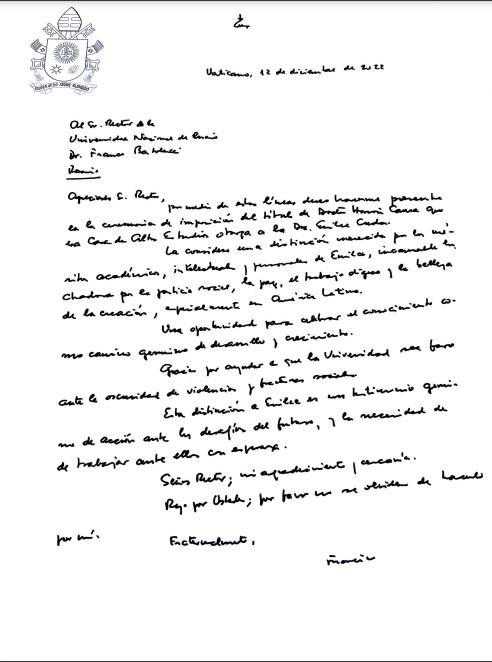 Vaticano, 12 de diciembre de 2022
Al Sr. Rector de la
Universidad Nacional de Rosario
Dr. Franco Bartolacci
Rosario
Apreciado S. Rector,
por medio de estas líneas deseo hacerme presente
en la ceremonia de imposición del título de Doctor Honoris Causa que
esa Casa de Altos Estudios otorga a la Dra. Emilce Cuda.
La considero una distinción merecida por los mé-
ritos académicos, intelectuales y personales de Emilce, incansable lu-
chadora por la justicia social, la paz, el trabajo digno y la belleza
de la creación, especialmente en América Latina.
Una oportunidad para celebrar el conocimiento co-
mo camino genuino de desarrollo y crecimiento.
Gracias por ayudar a que la Universidad sea faro
ante la oscuridad de violencias y fracturas sociales.
Esta distinción a Emilce es un testimonio genui-
no de acción ante los desafíos del futuro, y la necesidad de
de trabajar ante ellos con esperanza.
Señor Rector; mi agradecimiento y cercanía.
Rezo por Ustedes; por favor no se olviden de hacerlo
por mí.
Fraternalmente,
Francisco